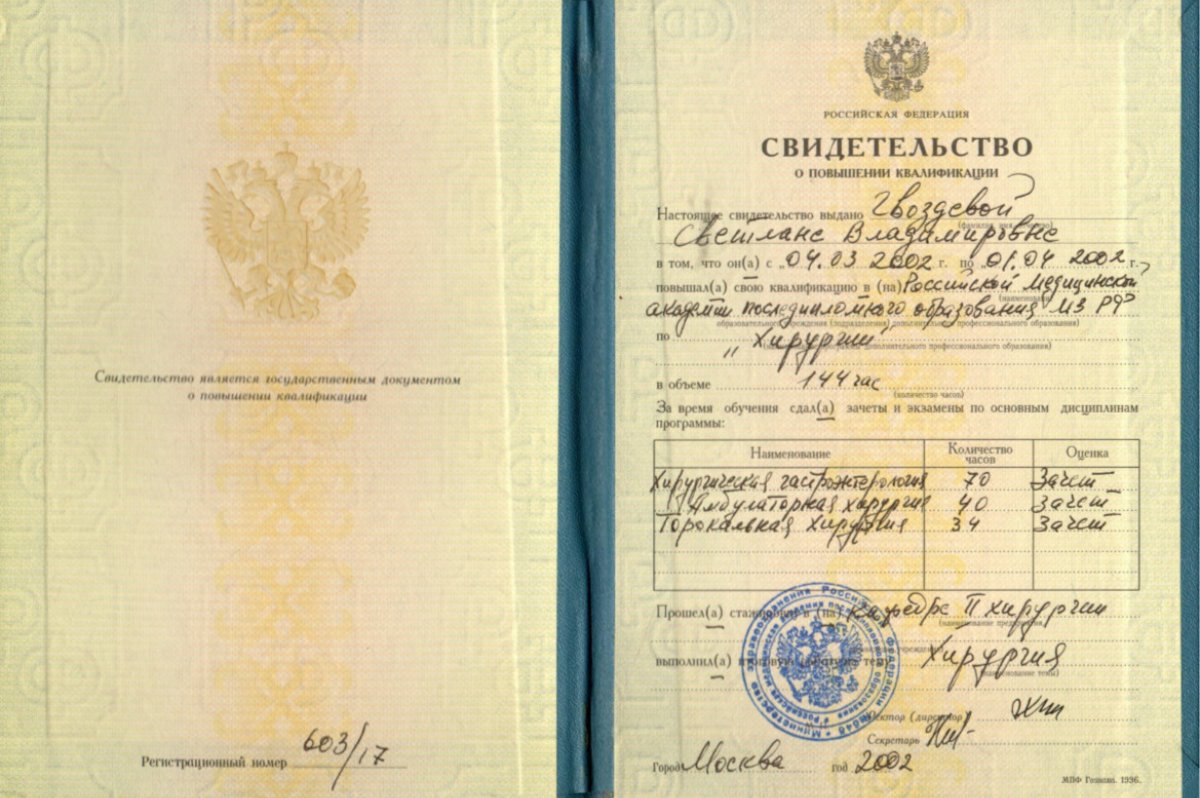 Свидетельство является государственным документом
о повышении квалификации
Регистрационный номер 603/17
РОССИЙСКАЯ ФЕДЕРАЦИЯ
СВИДЕТЕЛЬСТВО
О ПОВЫШЕНИИ КВАЛИФИКАЦИИ
Настоящее свидетельство выдано Гвоздевой
Светлане Владимировне
в том, что он(а) с „04.03 2002 г. по „01.04 2002 г.
повышал(а) свою квалификацию в (на) Российской Медицинской
(наименование
академии последипломного образования МЗ РФ
образовательного учреждения (подразделения) дополнительного профессионального образования)
по „Хирургии"
дополнительного профессионального образования)
в объеме 144 час
(количество часов)
За время обучения сдал(а) зачеты и экзамены по основным дисциплинам
программы:
Наименование Количество часов Оценка
Хирургическая гастроэнтерология 70 Зачет
Амбулаторная хирургия 40 Зачет
Торокальная Хирургия 34 Зачет
Прошел(а) в (на) Кафедре II хирургии
(наименование предприятия,
выполнил(а) итоговую Хирургия
(наименование темы)
Ректор (директор)
Секретарь
Город Москва год 2002
МПФ Гознака. 1996.